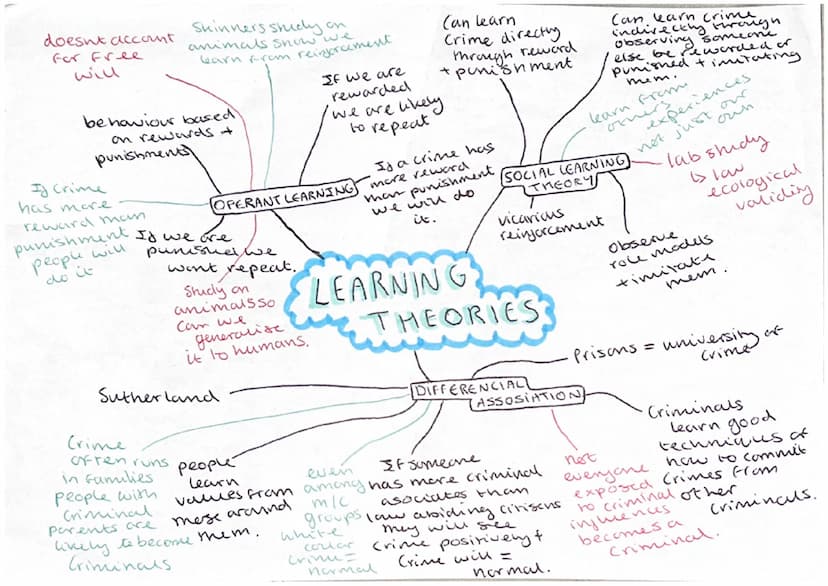 doesnt account
for free
will
Skinners study on
animals show we
learn from reinforcement
If we are
rewarded
we are likely
to repeat
behaviour based
on rewards +
punishments
If a crime has
more reward
than punishment
we will do
it.
OPERANT LEARNING
If crime
has more
reward than
punishment
people will
do it
If we are
punished we
wont repeat.
Study on
animals so
can we
generalise
it to humans.
Can learn
Crime directly
through reward
+ punishment
Can learn crime
indirectly through
observing someone
else be rewarded or
punished + imitating
them.
learn from
others
experiences
not just our
own
SOCIAL LEARNING
THEORY
lab study
↳ low
ecological
validity
vicarious
reinforcement
Observe
role models
+ imitate
them.
LEARNING
THEORIES
DIFFERENCIAL
ASSOSIATION
Prisons = university of
crime
Sutherland
Crime
often runs
in families
people with
criminal
parents are
likely to become
criminals
people
learn
values from
those around
them.
even
among
m/c
groups
white
collar
crime =
normal
If someone
has more criminal
asociates than
law abiding citisens
they will see
crime positively +
Crime will =
normal.
not
everyone
exposed
to criminal
influences
becomes a
criminal.
Criminals
learn good
techniques of
how to commit
crimes from
other
criminals.